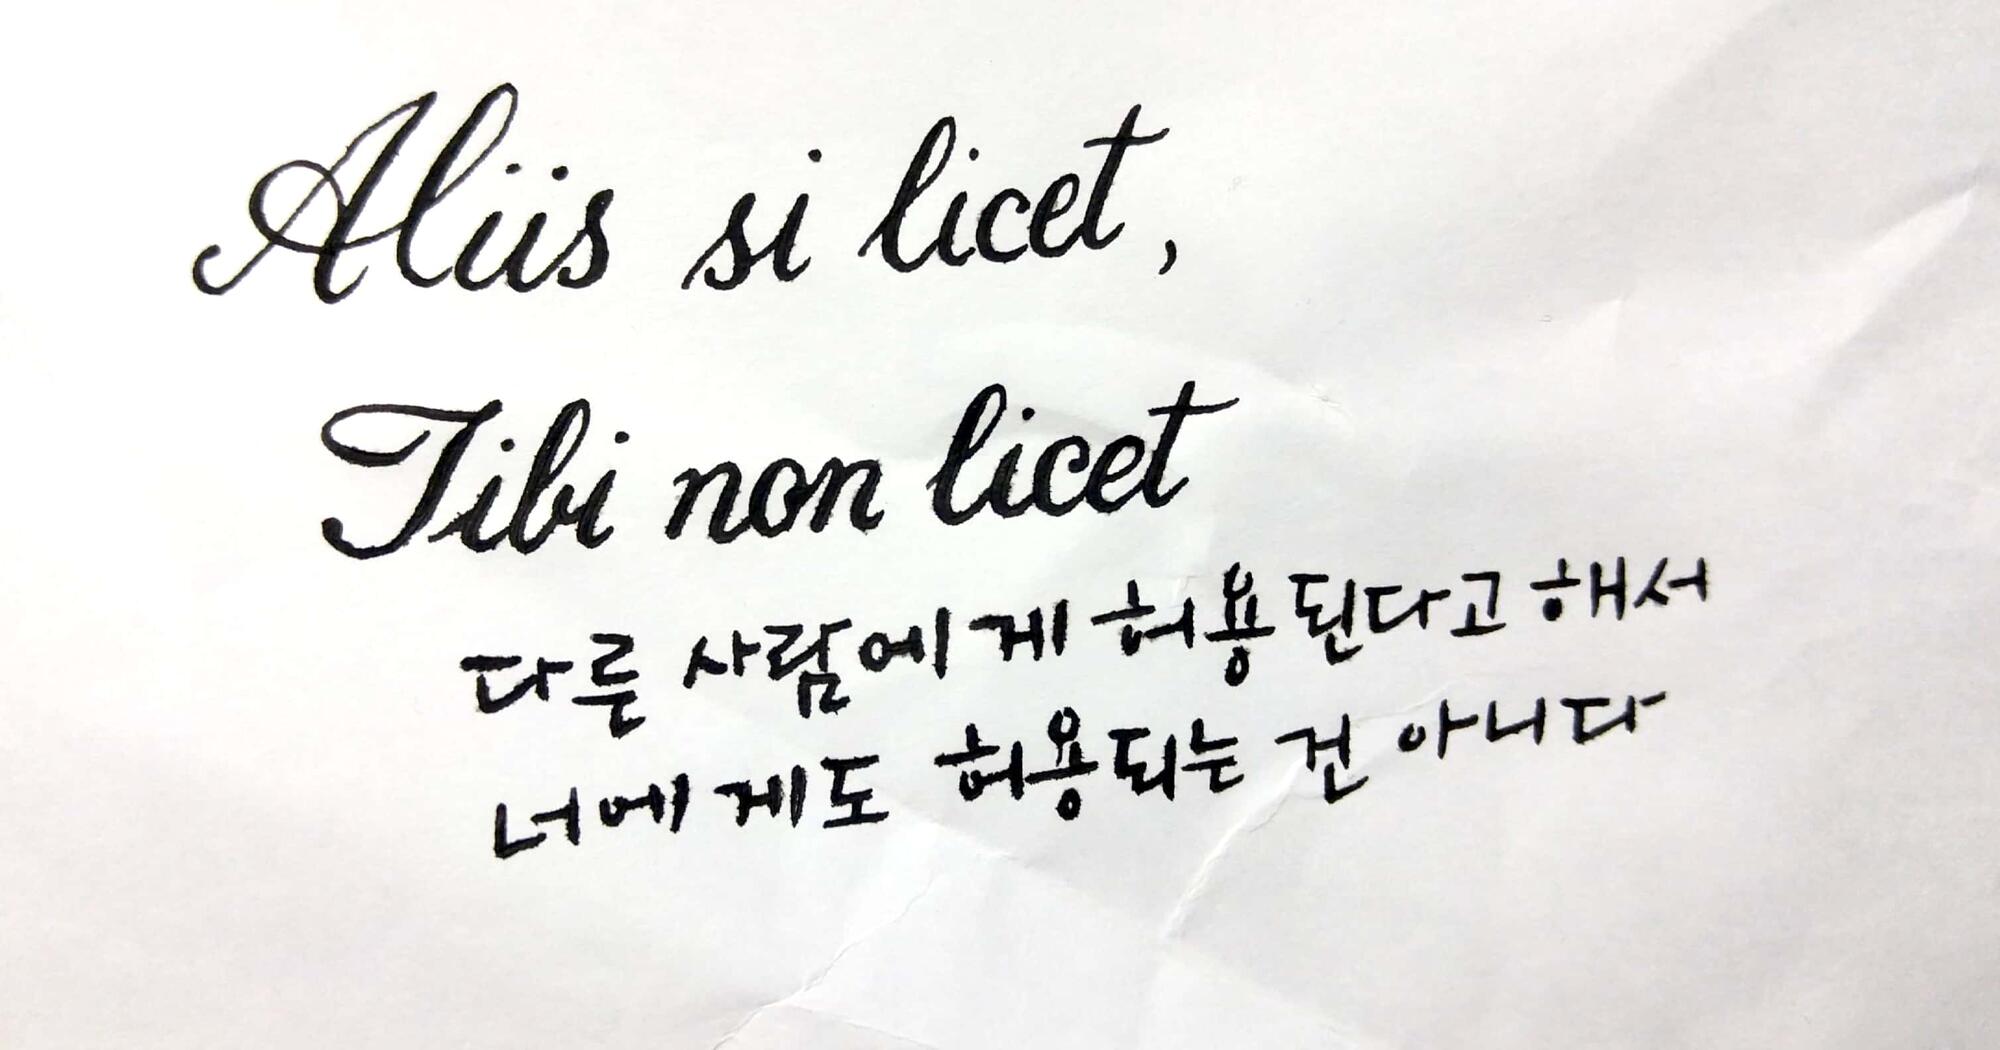 Aliis si licet,
Tibi non licet
다른 사람에게 허용된다고 해서
너에게도 허용되는 건 아니다